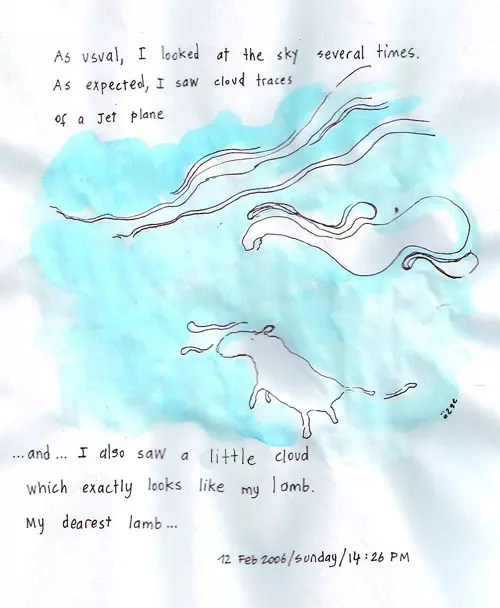 As usual, I looked at the sky several times.
As expected, I saw cloud traces
of a jet plane
özge
...and... I also saw a little cloud
which exactly looks like my lamb.
My dearest lamb...
12 Feb 2006/sunday/14:26 PM